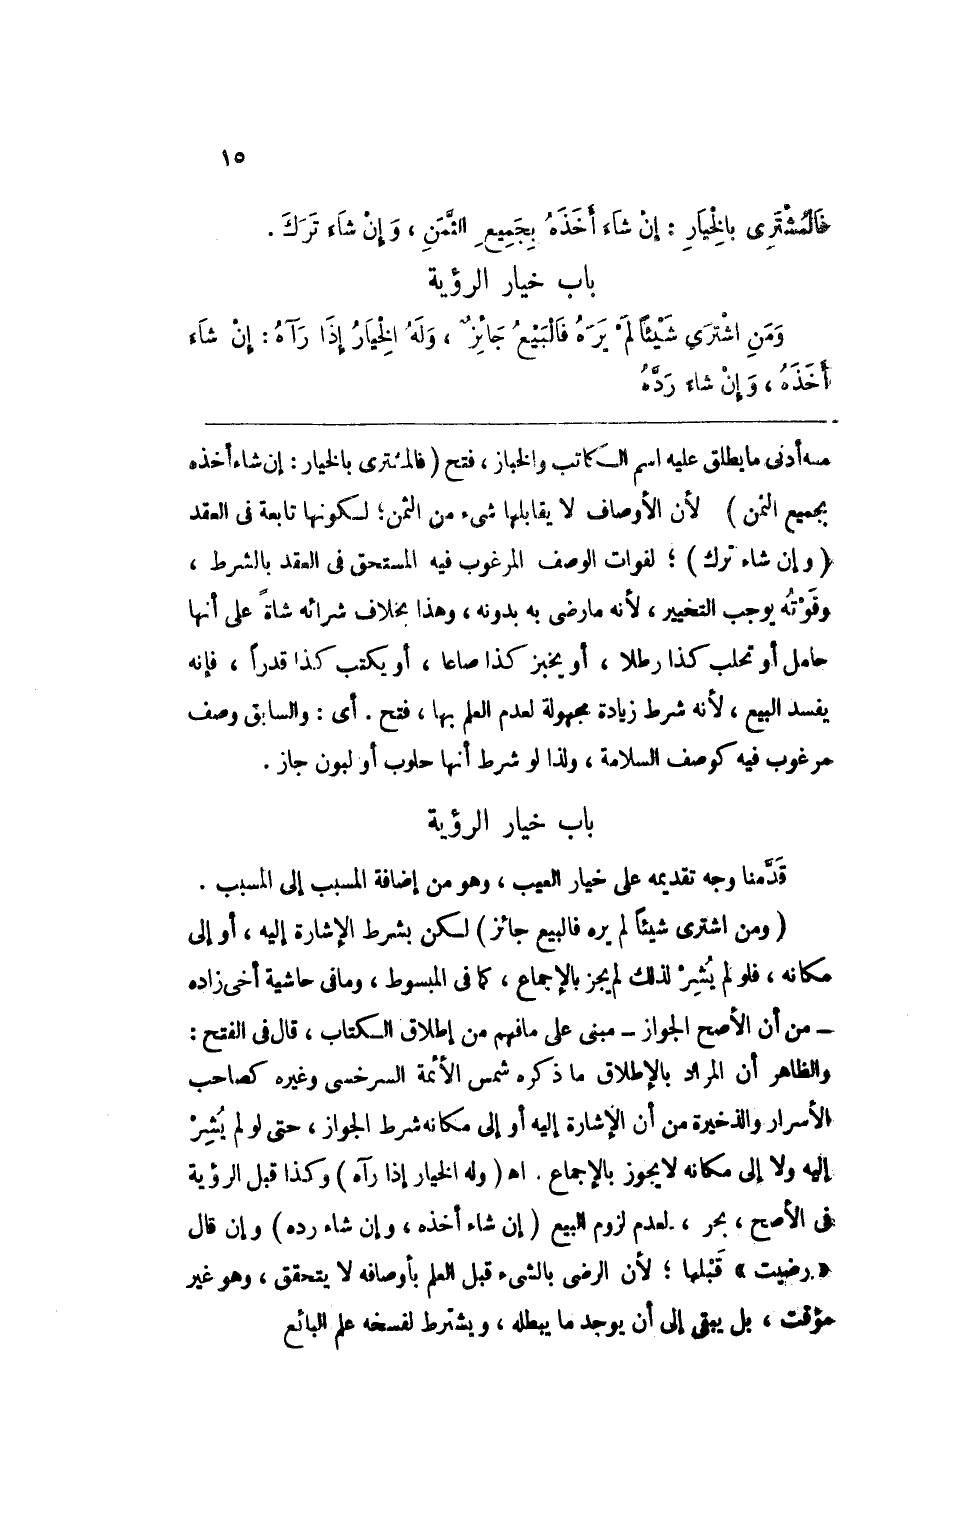 ١٥
فَالْمُشْتَرِى بِالْخِيَارِ : إِنْ شَاءَ أَخَذَهُ بِجَمِيعِ الثَّمَنِ ، وَإِنْ شَاءَ تَرَكَ .
باب خيار الرؤية
وَمَنِ اشْتَرَى شَيْئًا لَمْ يَرَهُ فَالْبَيْعُ جَائِزٌ ، وَلَهُ الْخِيَارُ إِذَا رَآهُ : إِنْ شَاءَ
أَخَذَهُ ، وَإِنْ شَاءَ رَدَّهُ
منه أدنى ما يطلق عليه اسم الكاتب والخباز ، فتح ( فالمشترى بالخيار : إن شاء أخذه
بجميع الثمن ) لأن الأوصاف لا يقابلها شىء من الثمن ؛ لكونها تابعة فى العقد
( وإن شاء ترك ) ؛ لفوات الوصف المرغوب فيه المستحق فى العقد بالشرط ،
وفَوْتُه يوجب التخيير ، لأنه مارضى به بدونه ، وهذا بخلاف شرائه شاةً على أنها
حامل أو تحلب كذا رطلا ، أو يخبز كذا صاعا ، أو يكتب كذا قدراً ، فإنه
يفسد البيع ، لأنه شرط زيادة مجهولة لعدم العلم بها ، فتح . أى : والسابق وصف
مرغوب فيه كوصف السلامة ، ولذا لو شرط أنها حلوب أو لبون جاز .
باب خيار الرؤية
قَدَّمنا وجه تقديمه على خيار العيب ، وهو من إضافة المسبب إلى المسبب .
( ومن اشترى شيئاً لم يره فالبيع جائز ) لكن بشرط الإشارة إليه ، أو إلى
مكانه ، فلو لم يُشِرْ لذلك لم يجز بالإجماع ، كما فى المبسوط ، ومافى حاشية أخى زاده
ـ من أن الأصح الجواز ـ مبنى على مافهم من إطلاق الكتاب ، قال فى الفتح :
والظاهر أن المراد بالإطلاق ما ذكره شمس الأئمة السرخسى وغيره كصاحب
الأسرار والذخيرة من أن الإشارة إليه أو إلى مكانه شرط الجواز ، حتى لو لم يُشِرْ
إليه ولا إلى مكانه لايجوز بالإجماع . اه ( وله الخيار إذا رآه ) وكذا قبل الرؤية
فى الأصح ، بحر ، لعدم لزوم البيع ( إن شاء أخذه ، وإن شاء رده ) وإن قال
« رضيت » قَبْلها ؛ لأن الرضى بالشىء قبل العلم بأوصافه لا يتحقق ، وهو غير
مؤقت ، بل يبقى إلى أن يوجد ما يبطله ، ويشترط لفسخه علم البائع